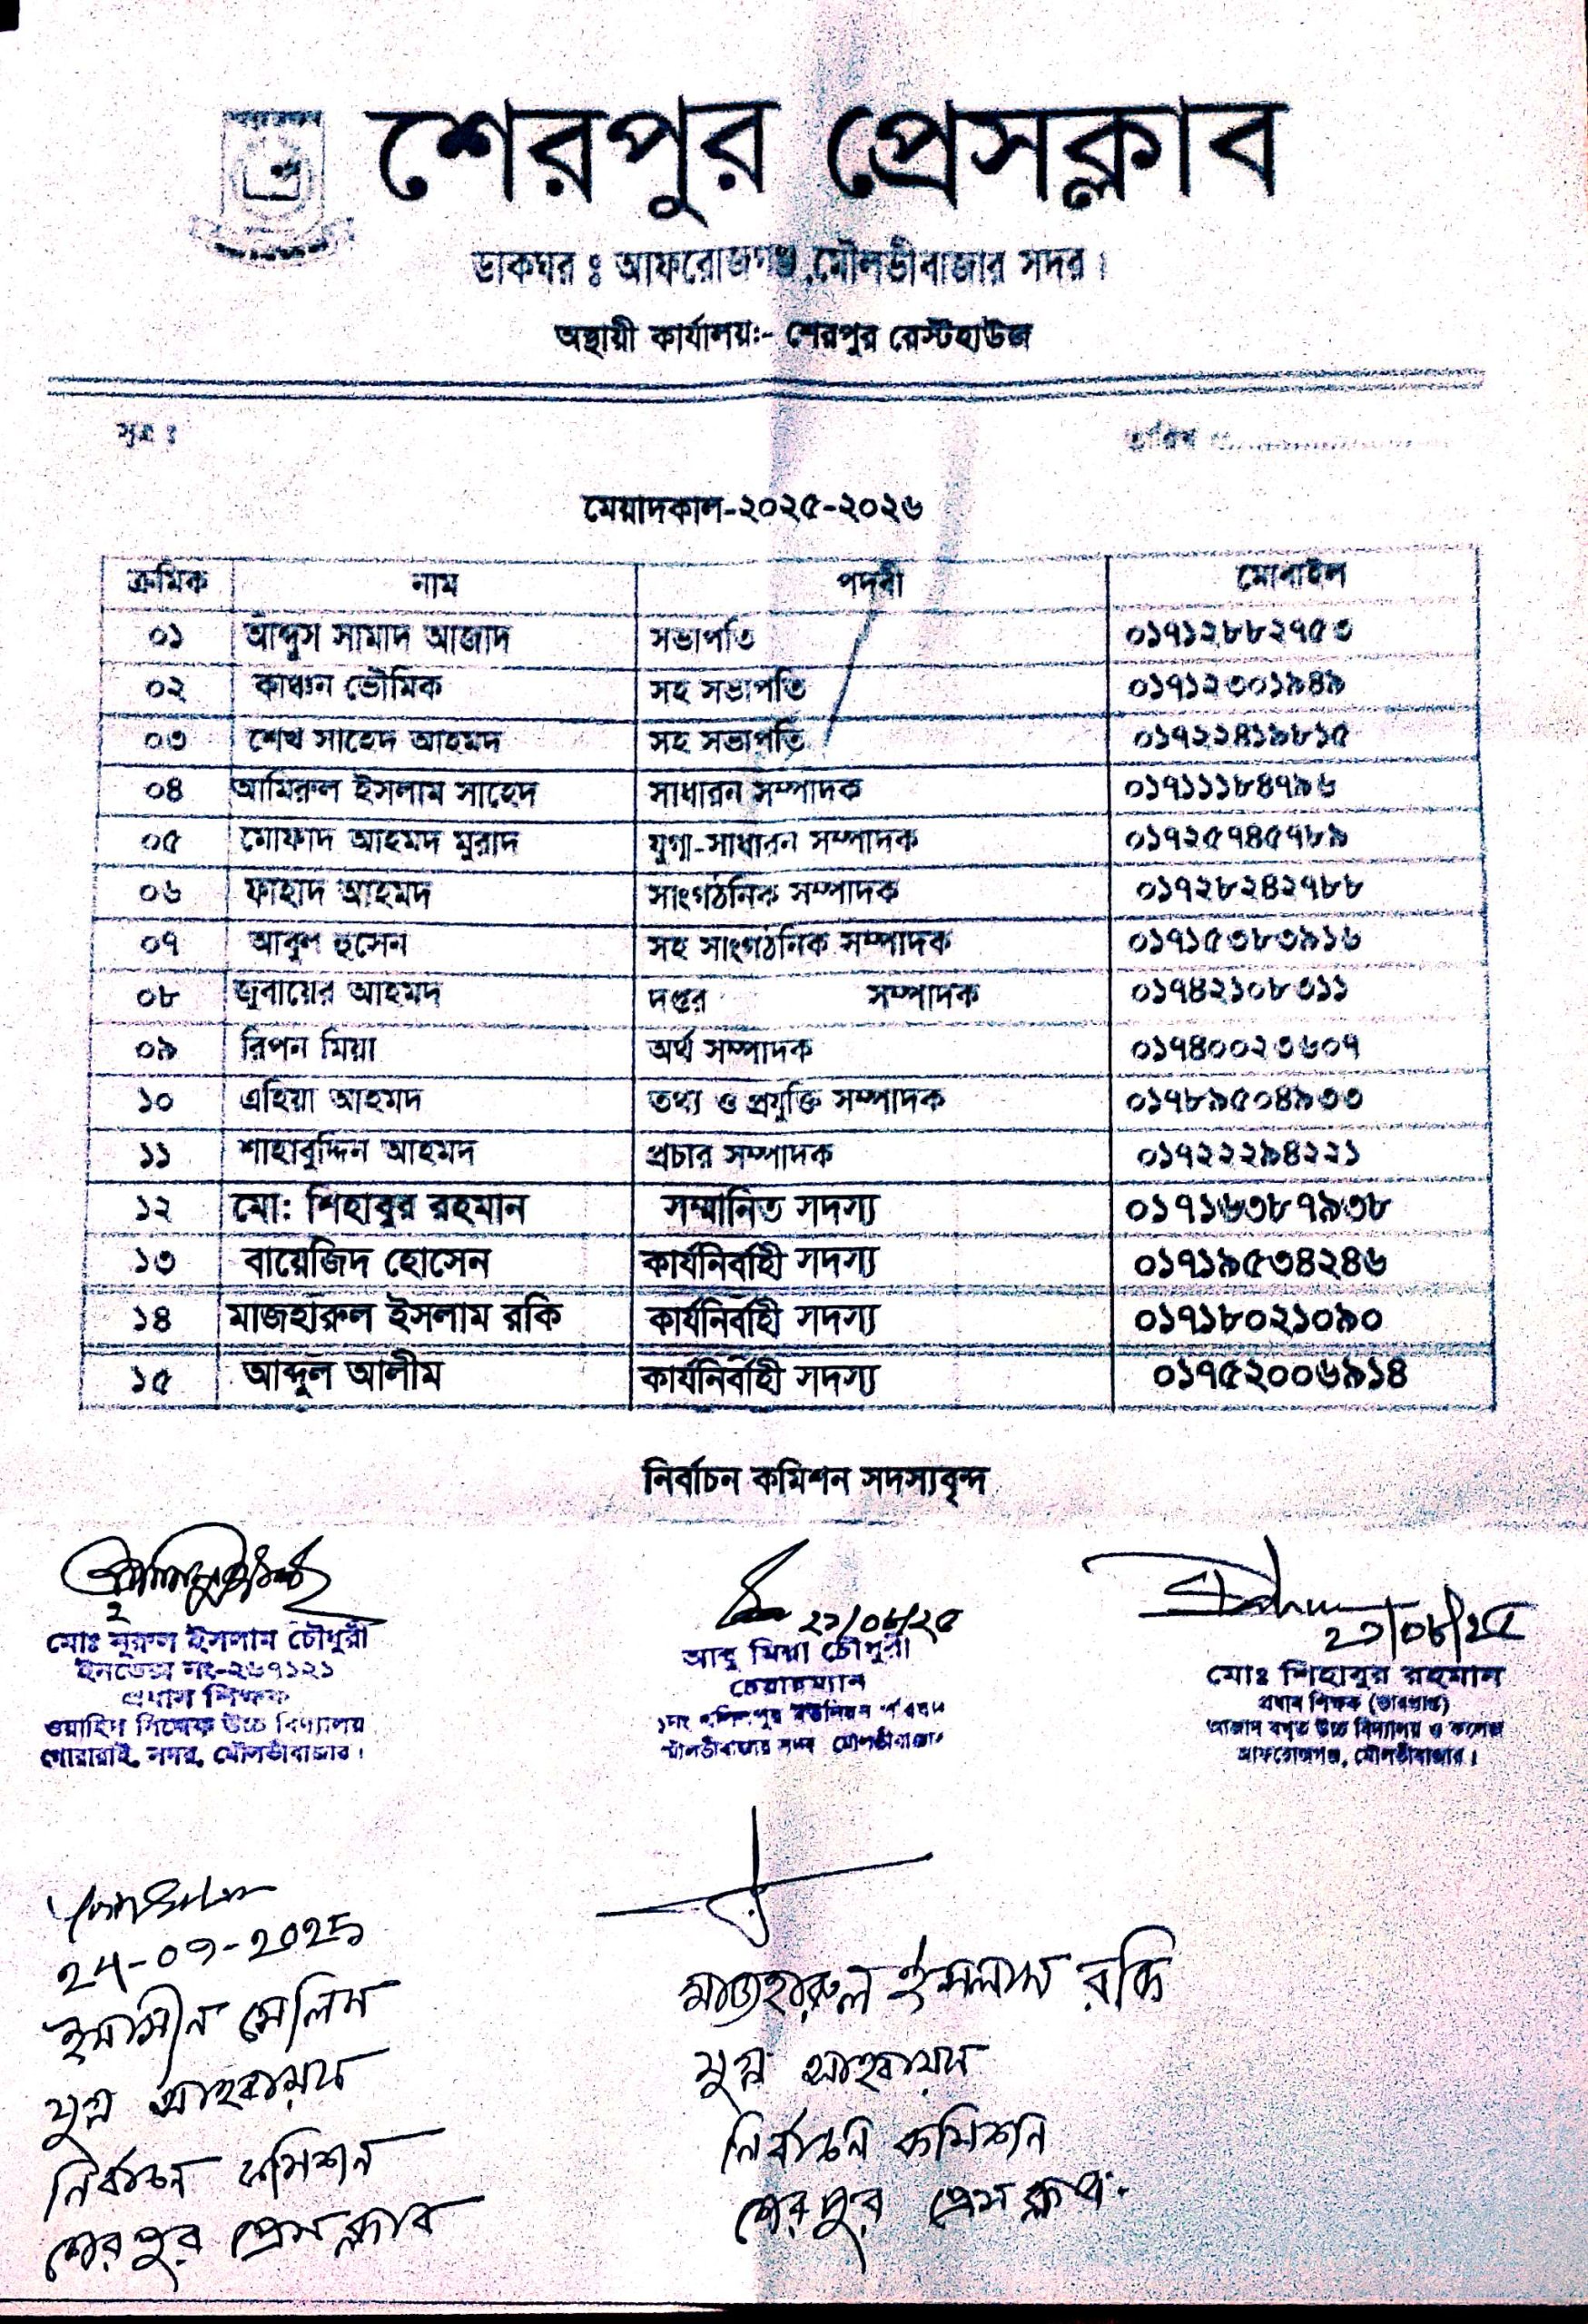 শেরপুর প্রেসক্লাব
ডাকঘর ঃ আফরোজগঞ্জ,মৌলভীবাজার সদর।
অস্থায়ী কার্যালয়ঃ- শেরপুর রেস্টহাউজ
সূত্র ঃ তারিখ ঃ
মেয়াদকাল-২০২৫-২০২৬
ক্রমিক নাম পদবী মোবাইল
০১ আব্দুস সামাদ আজাদ সভাপতি ০১৭১২৮৮২৭৫৩
০২ কাঞ্চন ভৌমিক সহ সভাপতি ০১৭১২৩০১৯৪৯
০৩ শেখ সাহেদ আহমদ সহ সভাপতি ০১৭২২৪১৯৮১৫
০৪ আমিরুল ইসলাম সাহেদ সাধারন সম্পাদক ০১৭১১১৮৪৭৯৬
০৫ মোফাদ আহমদ মুরাদ যুগ্ম-সাধারন সম্পাদক ০১৭২৫৭৪৫৭৮৯
০৬ ফাহাদ আহমদ সাংগঠনিক সম্পাদক ০১৭২৮২৪২৭৮৮
০৭ আবুল হুসেন সহ সাংগঠনিক সম্পাদক ০১৭১৫৩৮৩৯১৬
০৮ জুবায়ের আহমদ দপ্তর সম্পাদক ০১৭৪২১০৮৩১১
০৯ রিপন মিয়া অর্থ সম্পাদক ০১৭৪০০২৩৬০৭
১০ এহিয়া আহমদ তথ্য ও প্রযুক্তি সম্পাদক ০১৭৮৯৫০৪৯৩৩
১১ শাহাবুদ্দিন আহমদ প্রচার সম্পাদক ০১৭২২২৯৪২২১
১২ মো: শিহাবুর রহমান সম্মানিত সদস্য ০১৭১৬৩৮৭৯৩৮
১৩ বায়েজিদ হোসেন কার্যনির্বাহী সদস্য ০১৭১৯৫৩৪২৪৬
১৪ মাজহারুল ইসলাম রকি কার্যনির্বাহী সদস্য ০১৭১৮০২১০৯০
১৫ আব্দুল আলীম কার্যনির্বাহী সদস্য ০১৭৫২০০৬৯১৪
নির্বাচন কমিশন সদস্যবৃন্দ
মোঃ নুরুল ইসলাম চৌধুরী
ইনডেক্স নং-২৬৭১২১
প্রধান শিক্ষক
ওয়াহিদ সিদ্দেক উচ্চ বিদ্যালয়
গোরারাই, সদর, মৌলভীবাজার।
২১/০৮/২৫
আবু মিয়া চৌধুরী
চেয়ারম্যান
১নং খলিলপুর ইউনিয়ন পরিষদ
মৌলভীবাজার সদর মৌলভীবাজার
২১/০৮/২৫
মোঃ শিহাবুর রহমান
প্রধান শিক্ষক (ভারপ্রাপ্ত)
আজাদ বখ্ত উচ্চ বিদ্যালয় ও কলেজ
আফরোজগঞ্জ, মৌলভীবাজার।
ইয়ামীন সেলিম
যুগ্ম আহবায়ক
নির্বাচন কমিশন
শেরপুর প্রেস ক্লাব
মাজহারুল ইসলাম রকি
যুগ্ম আহবায়ক
নির্বাচন কমিশন
শেরপুর প্রেস ক্লাব